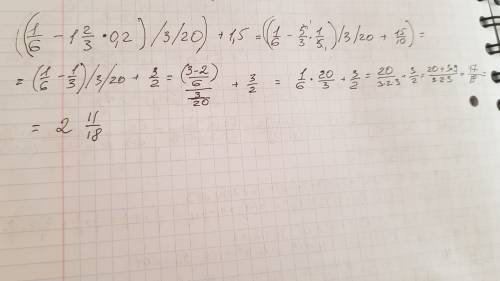 ((1/6 - 1 2/3 · 0,2) / 3/20) + 1,5 = ((1/6 - 5/3 · 1/5) / 3/20 + 15/10) =
= (1/6 - 1/3) / 3/20 + 3/2 = ((3-2)/6)/(3/20) + 3/2 = 1/6 · 20/3 + 3/2 = 20/(3·2·3) + 3/2 =
= 2 11/18